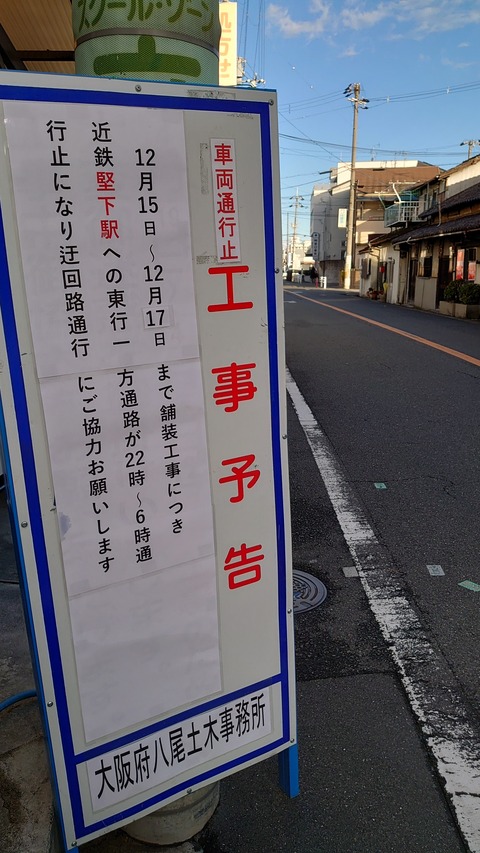 スクール・ゾーン
車両通行止
工事予告
12月15日～12月17日まで舗装工事につき
近鉄堅下駅への東行一方通路が22時～6時通
行止になり迂回路通行にご協力お願いします
大阪府八尾土木事務所